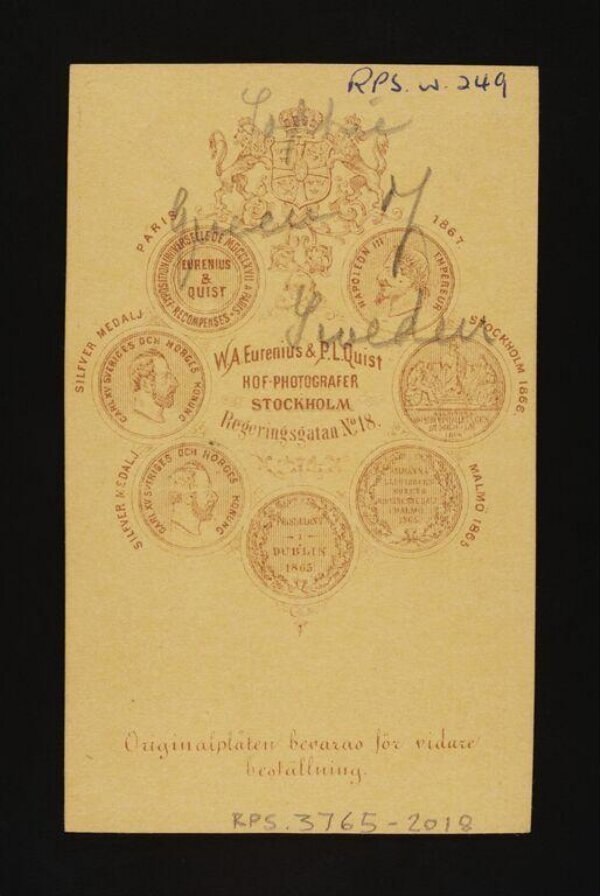 RPS. w. 249
Sophie
Queen of
Sweden
PARIS 1867
EXPOSITION UNIVERSELLE DE MDCCCLXVII A PARIS
RECOMPENSES
EURENIUS
&
QUIST
NAPOLEON III EMPEREUR
SILFVER MEDALJ
CARL XV SVERIGES OCH NORGES KONUNG
STOCKHOLM 1866
W.A Eurenius & P.L Quist
HOF-PHOTOGRAFER
STOCKHOLM
Regeringsgatan No 18.
SILFVER MEDALJ
CARL XV SVERIGES OCH NORGES KONUNG
MALMÖ 1865
MALMÖ
1865
DUBLIN
1865
Originalplåten bevaras för vidare
beställning.
RPS. 3765-2018